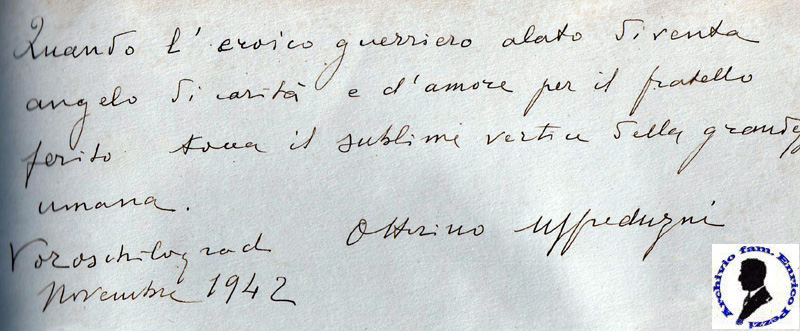 Quando l'eroico guerriero alato diventa
angelo di carità e d'amore per il fratello
ferito tocca il sublime vertice della grandezza
umana.
Ottorino Uffreduzzi
Voroschilograd
Novembre 1942
Archivio fam. Enrico Pezzi